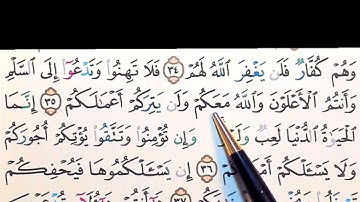 وَهُمْ كُفَّارٌ فَلَن يَغْفِرَ اللَّهُ لَهُمْ ٣٤ فَلَا تَهِنُوا وَتَدْعُوا إِلَى السَّلْمِ
وَأَنتُمُ الْأَعْلَوْنَ وَاللَّهُ مَعَكُمْ وَلَن يَتِرَكُمْ أَعْمَالَكُمْ ٣٥ إِنَّمَا
الْحَيَوٰةُ الدُّنْيَا لَعِبٌ وَإِن تُؤْمِنُوا وَتَتَّقُوا يُؤْتِكُمْ أُجُورَكُمْ
وَلَا يَسْـَٔلْكُمْ ٣٦ إِن يَسْـَٔلْكُمُوهَا فَيُحْفِكُمْ